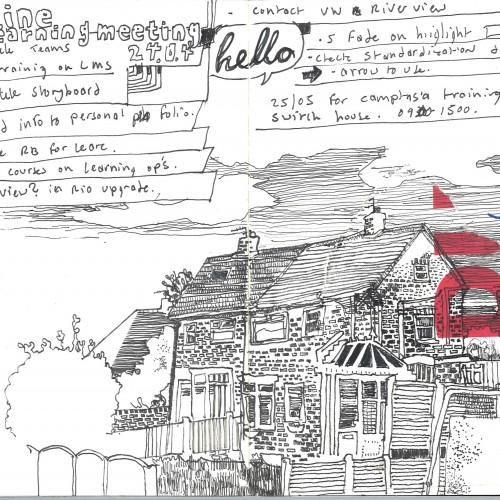 ine
earning meeting
Teams 24.04
raining on LMS
storyboard
d info to personal folio.
RB for leave.
courses on learning op's.
view? in Rio upgrade.
hello
- contact VW Riverview
.5 fade on highlight
- check standardization
- arrow to use.
25/05 for camptasia training
switch house. 0930 1500.